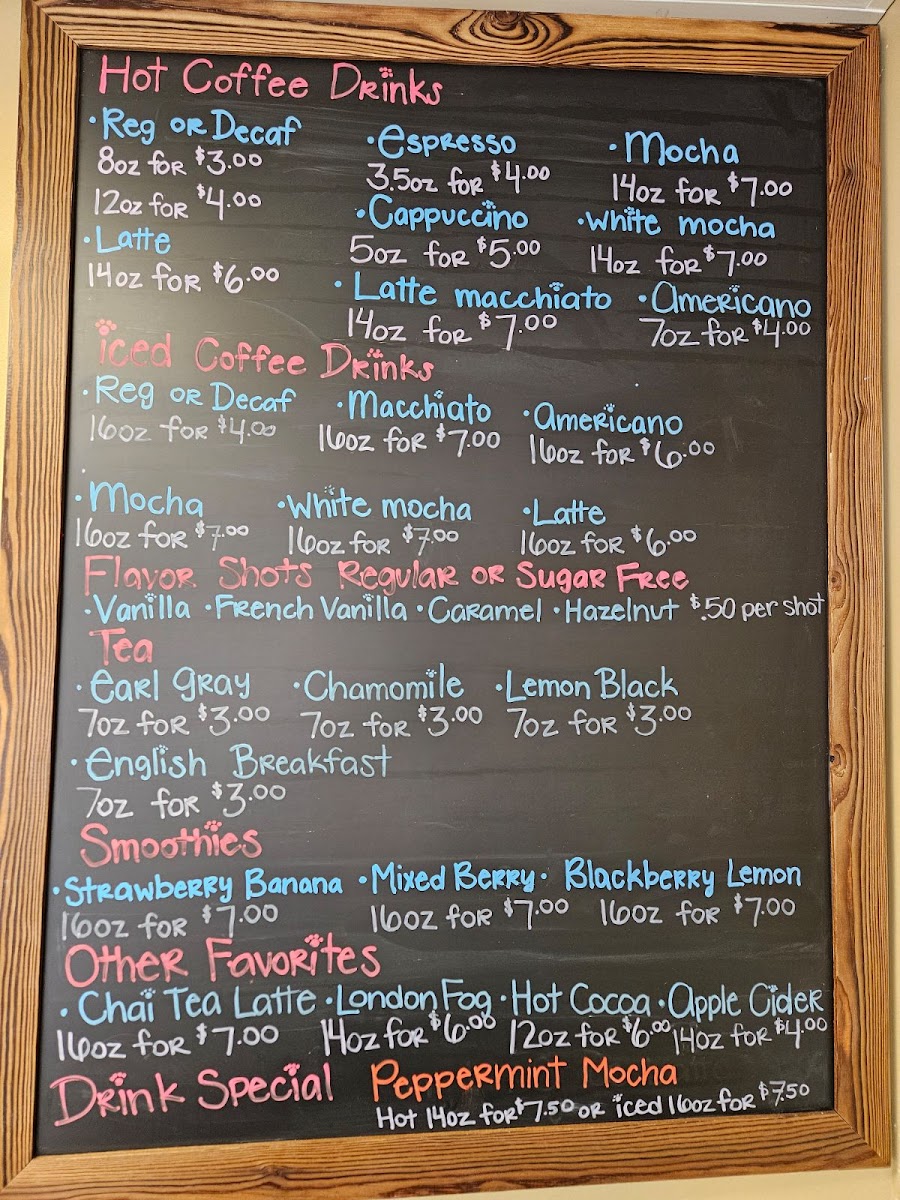 Hot Coffee Drinks
• Reg or Decaf
8oz for $3.00
12oz for $4.00
• Latte
14oz for $6.00
• Espresso
3.5oz for $4.00
• Cappuccino
5oz for $5.00
• Latte macchiato
14oz for $7.00
• Mocha
14oz for $7.00
• White mocha
14oz for $7.00
• Americano
7oz for $4.00
iced Coffee Drinks
• Reg or Decaf
16oz for $4.00
• Macchiato
16oz for $7.00
• Americano
16oz for $6.00
• Mocha
16oz for $7.00
• White mocha
16oz for $7.00
• Latte
16oz for $6.00
Flavor Shots Regular or Sugar Free
• Vanilla • French Vanilla • Caramel • Hazelnut $.50 per shot
Tea
• Earl Gray
7oz for $3.00
• Chamomile
7oz for $3.00
• Lemon Black
7oz for $3.00
• English Breakfast
7oz for $3.00
Smoothies
• Strawberry Banana • Mixed Berry • Blackberry Lemon
16oz for $7.00 16oz for $7.00 16oz for $7.00
Other Favorites
• Chai Tea Latte • London Fog • Hot Cocoa • Apple Cider
16oz for $7.00 14oz for $6.00 12oz for $6.00 14oz for $4.00
Drink Special Peppermint Mocha
Hot 14oz for $7.50 or iced 16oz for $7.50